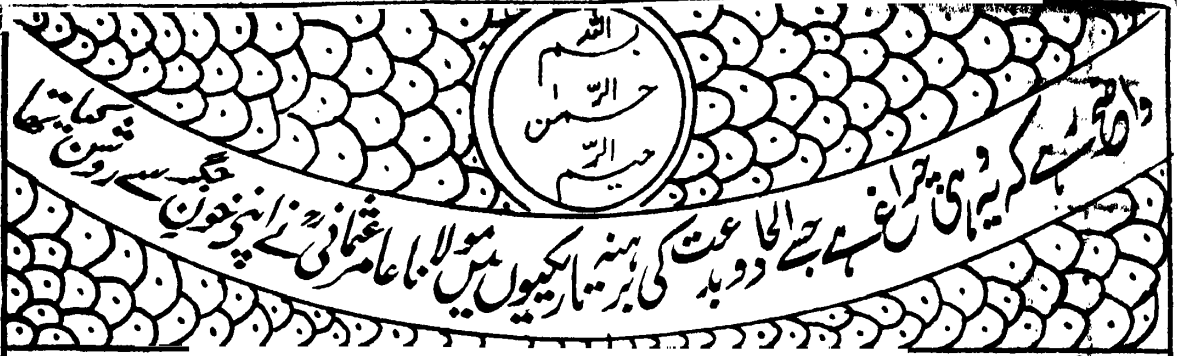 بسم الله
الرحمن
الرحيم
واضح رہے کہ یہ وہی چراغ ہے جسے الحاد و بدعت کی برہنہ تاریکیوں میں مولانا عامر عثمانیؒ نے اپنے خونِ جگر سے روشن کیا تھا